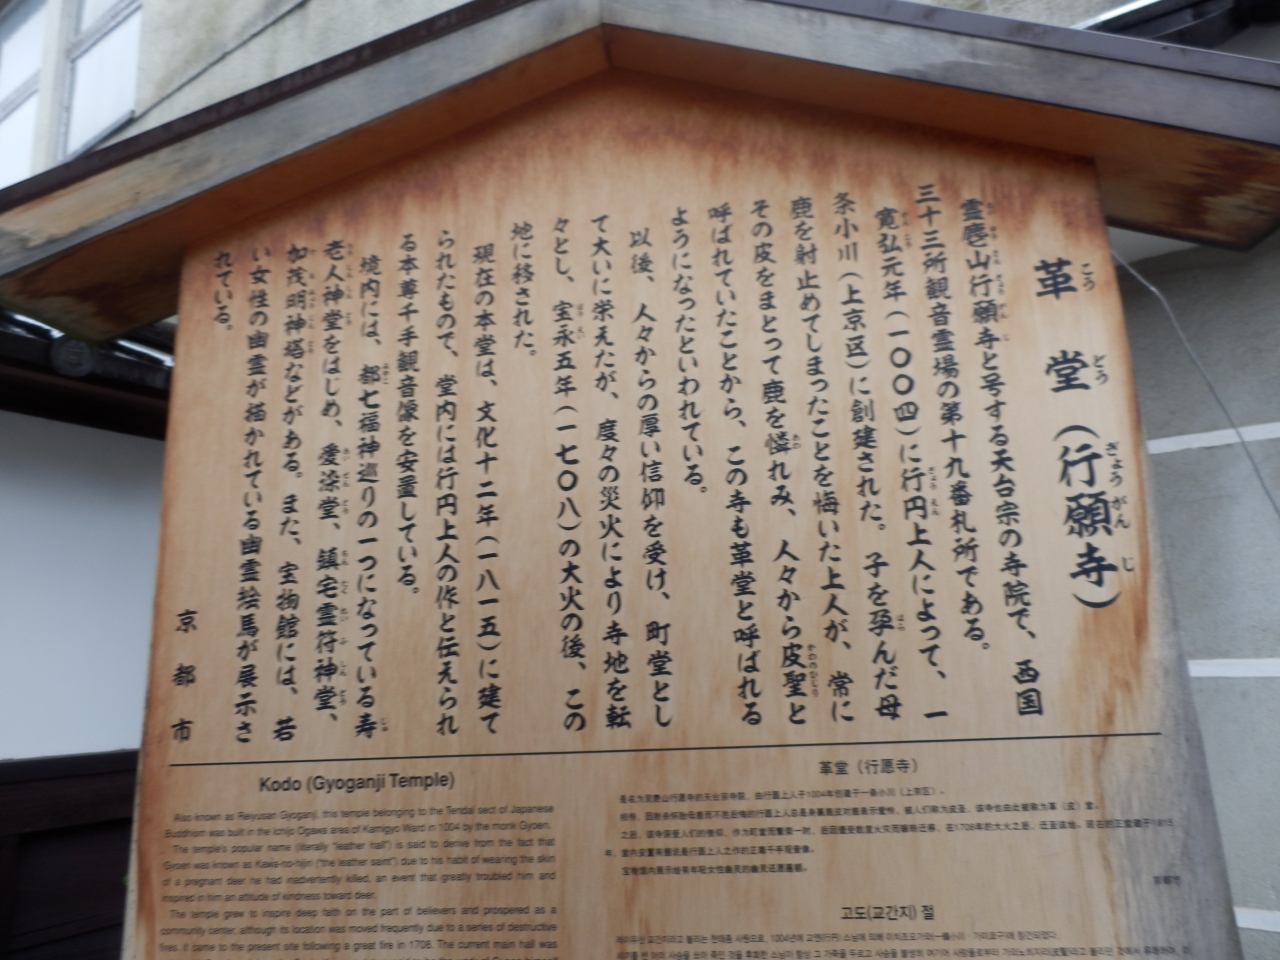 革堂（行願寺）
霊麀山行願寺と号する天台宗の寺院で、西国
三十三所観音霊場の第十九番札所である。
寛弘元年（一〇〇四）に行円上人によって、一
条小川（上京区）に創建された。子を孕んだ母
鹿を射止めてしまったことを悔いた上人が、常に
その皮をまとって鹿を憐れみ、人々から皮聖と
呼ばれていたことから、この寺も革堂と呼ばれる
ようになったといわれている。
以後、人々からの厚い信仰を受け、町堂とし
て大いに栄えたが、度々の災火により寺地を転
々とし、宝永五年（一七〇八）の大火の後、この
地に移された。
現在の本堂は、文化十二年（一八一五）に建て
られたもので、堂内には行円上人の作と伝えられ
る本尊千手観音像を安置している。
境内には、都七福神巡りの一つになっている寿
老人神堂をはじめ、愛染堂、鎮宅霊符神堂、
加茂明神塔などがある。また、宝物館には、若
い女性の幽霊が描かれている幽霊絵馬が展示さ
れている。
京都市
Kodo (Gyoganji Temple)
Also known as Reiyusan Gyoganji, this temple belonging to the Tendai sect of Japanese
Buddhism was built in the Ichijo Ogawa area of Kamigyo Ward in 1004 by the monk Gyoen.
The temple's popular name (literally "leather hall") is said to derive from the fact that
Gyoen was known as Kawa-no-hijiri ("the leather saint") due to his habit of wearing the skin
of a pregnant deer he had inadvertently killed, an event that greatly troubled him and
inspired in him an attitude of kindness toward deer.
The temple grew to inspire deep faith on the part of believers and prospered as a
community center, although its location was moved frequently due to a series of destructive
fires. It came to the present site following a great fire in 1708. The current main hall was
革堂（行愿寺）
고도(교간지) 절